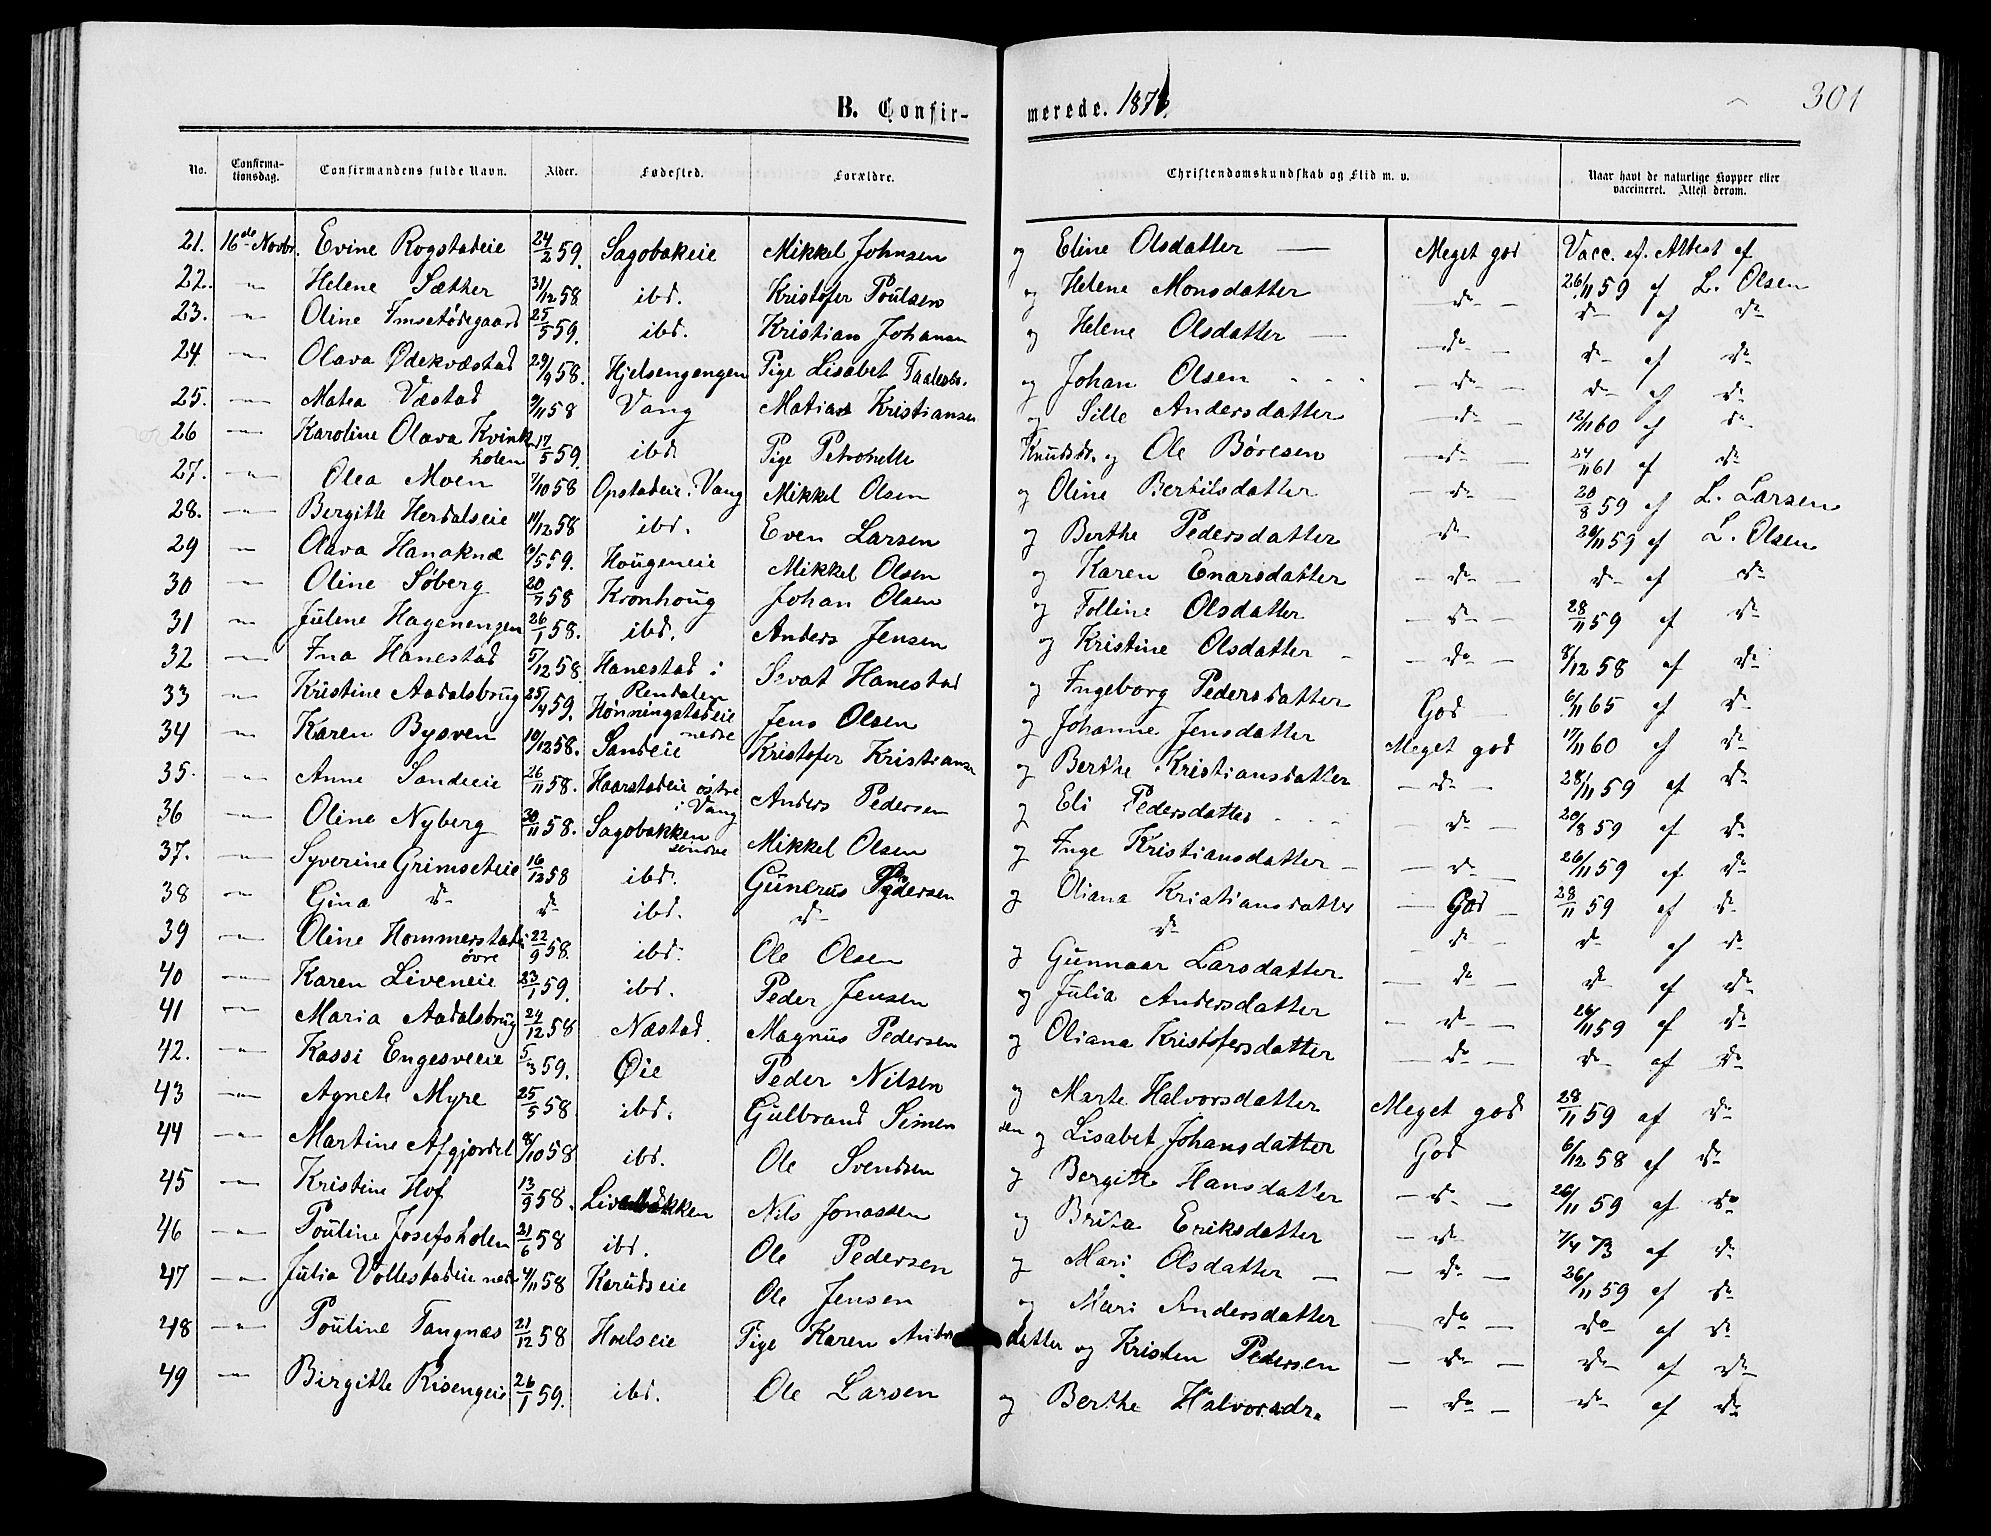 B. Confirmerede. 187
301
No. Confirmationsdag. Confirmandens fulde Navn. Alder. Fødested. Forældre. Christendomskundskab og Flid m. v. Naar havt de naturlige Kopper eller vaccineret. Attest derom.
21. 16de Novbr. Evine Rogstadeie 24/2 59. Sagobakeie Mikkel Johnsen og Eline Olsdatter — Meget god Vacc. ef. Attest af
22. –"– Helene Sæther 31/12 58 ibd. Kristofer Poulsen og Helene Monsdatter – do – 26/11 59 af L. Olsen
23. –"– Oline Imsetødegaard 25/5 59. ibd. Kristian Johansen og Helene Olsdatter — – do – do af do
24 –"– Olava Ødekvæstad 29/9 58. Hjelsengengen Pige Lisabet Taalesdr. og Johan Olsen – do – do af do
25. –"– Matea Væstad 9/11 58 Vang Matias Kristiansen og Sille Andersdatter – do – 12/11 60 af do
26 –"– Karoline Olava Kvinkholen 17/5 59. ibd Pige Petronelle Knudsdr. og Ole Børesen – do – 24/11 61 af do
27. –"– Olea Moen 7/10 58 Opstadeie i Vang Mikkel Olsen og Oline Bertilsdatter – do – 20/8 59 af L. Larsen
28. –"– Bergitte Herdalseie 14/12 58 ibd. Even Larsen og Berthe Pedersdatter do 26/11 59 af L. Olsen
29 –"– Olava Hanaknæ 6/5 59. Hougeneie Mikkel Olsen og Karen Enarsdatter – do – do af do
30 –"– Oline Søberg 20/7 58 Kronhoug Johan Olsen og Folline Olsdatter – do – 28/11 59 af do
31 –"– Julene Hagenengen 26/1 58. ibd. Anders Jensen og Kristine Olsdatter – – do – 8/12 58 af do
32 –"– Ina Hanestad 5/12 58. Hanestad i Rendalen Sivat Hanestad og Ingeborg Pedersdatter God – 6/11 65 af do
33 –"– Kristine Aadalsbrug 25/4 59. Hønningstadeie nedre Jens Olsen og Johanne Jensdatter Meget god 17/11 60 af do
34 –"– Karen Bysven 10/12 58. Sandeie Kristofer Kristiansen og Berthe Kristiansdatter – do – 28/11 59 af do
35. –"– Anne Sandeeie 26/11 58. Haarstadeie østre i Vang Anders Pedersen og Eli Pedersdatter – do – 20/8 59 af do
36 –"– Oline Nyberg 30/11 58. Sagobakken søndre Mikkel Olsen og Inge Kristiansdatter – – do – 26/11 59 af do
37. –"– Syverine Grimseteie 16/12 58 ibd. Gunerus Pedersen og Oliana Kristiansdatter – God – 28/11 59 af do
38 –"– Gina do do ibd. do do – do – do af do
39 –"– Oline Hommerstad øvre 22/9 58. ibd. Ole Olsen og Gunnaar Larsdatter – do – do af do
40 –"– Karen Liveneie 23/1 59. ibd. Peder Jensen og Julia Andersdatter – do – 26/11 59 af do
41 –"– Maria Aadalsbrug 24/12 58 Næstad. Magnus Pedersen og Oliana Kristofersdatter – do – do af do
42. –"– Kassi Engesveeie 5/3 59. Øie Peder Nilsen og Marte Halvorsdatter Meget god 28/11 59 af do
43 –"– Agnete Myre 25/5 58. ibd. Gulbrand Simensen og Lisabet Johansdatter God 6/12 58 af do
44 –"– Martine Afgjordet 8/10 58 ibd. Ole Svendsen og Bergitte Hansdatter – do – 26/11 59 af do
45 –"– Kristine Hof 13/9 58. Nils Jonassen og Brita Eriksdatter – do 7/4 73 af do
46 –"– Pouline Josefsholen 21/6 58 ibd. Ole Pedersen og Mari Olsdatter – – do – 26/11 59 af do
47 –"– Julia Vollestadeie nedre 4/11 58 Karudseie Ole Jensen og Mari Andersdatter – do – do af do
48 –"– Pouline Tangnæs 21/12 58 Hoelseie Pige Karen Andersdatter og Kristen Pedersen – do – do af do
49 –"– Birgitte Risengeie 26/1 59. ibd. Ole Larsen og Berthe Halvorsdr. – do – do af do